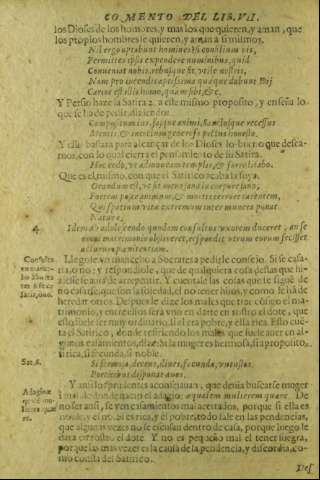 COMENTO DEL LIB. VII.
los Dioses de los hombres, y mas los que quieren, y aman, que
los propios hombres le quieren, y aman a si mismos.
Nil ergo optabunt homines? si consilium vis,
Permittes ipsis expendere numinibus, quid
Conveniat nobis, rebusque sit vtile nostris,
Nam pro iucundis aptissima quæque dabunt Dij
Carior est illis homo, quam sibi, &c.
Y Persio haze la Satira 2. a este mismo proposito, y enseña lo
que se ha de pedir, diziendo:
Compositum ius, fasque animi, sanctosque recessus
Mentis, & incoctum generoso pectus honesto.
Y esto bastara para alcançar de los Dioses lo bueno que dessea-
mos, con lo qual cierra el pensamiento de su Satira.
Hoc cedo, vt admoueam templis, & farre litabo.
Que es el mismo, con que el Satirico acaba la suya.
Orandum est, vt sit mens sana in corpore sano,
Fortem posce animum, & mortis terrore carentem,
Qui spatium vitæ extremum inter munera ponat
Naturæ,
4. Idem ab adolescendo quodam consultus vxorem duceret, an se
omni matrimonio abstineret, respondit, vtrum eorum fecisset
acturum pænitentiam.
Llegole vn mancebo a Socrates a pedirle consejo. Si se casa-
ria, o no: y respondiole, que de qualquiera cosa destas que hi-
ziesse se auia de arrepentir. Y cuentale las cosas que se sigue de
no casarse, que son la soledad, el no tener hijos, y como le ha de
heredar otro. Despues le dize los males que trae consigo el ma-
trimonio, y entre ellos será vno en darte en rostro el dote, que
esto suele ser muy ordinario, si el era pobre, y ella rica. Esto cuẽ-
ta el Satirico, donde refiriendo los males que suele auer en al-
gunos casamientos, dize: Si la muger es hermosa, si a proposito,
si rica, si fecunda, si noble.
Sat. 6. Si formosa, decens, diues, fecunda, vetustos
Porticibus disponat auos.
Y assi los prudentes aconsejauan, que deuia buscarse muger
igual, de donde nacio el adagio: æqualem mulierem quære. De
no ser assi, se ven casamientos mal acertados, porque si ella es
noble, y el no. Si es rica, y el pobre, todo sale en las pendencias,
que algunas vezes no se escusan dentro de casa, porque luego le
dara en rostro el dote. Y no es pequeño mal el tener suegra,
porque las mas vezes es la causa de la pendencia, y discordia, co-
mo consta del Satirico.
Des